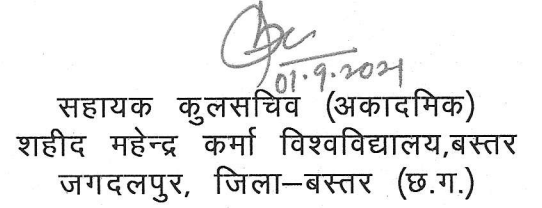 01.9.2021
सहायक कुलसचिव (अकादमिक)
शहीद महेन्द्र कर्मा विश्वविद्यालय,बस्तर
जगदलपुर, जिला–बस्तर (छ.ग.)